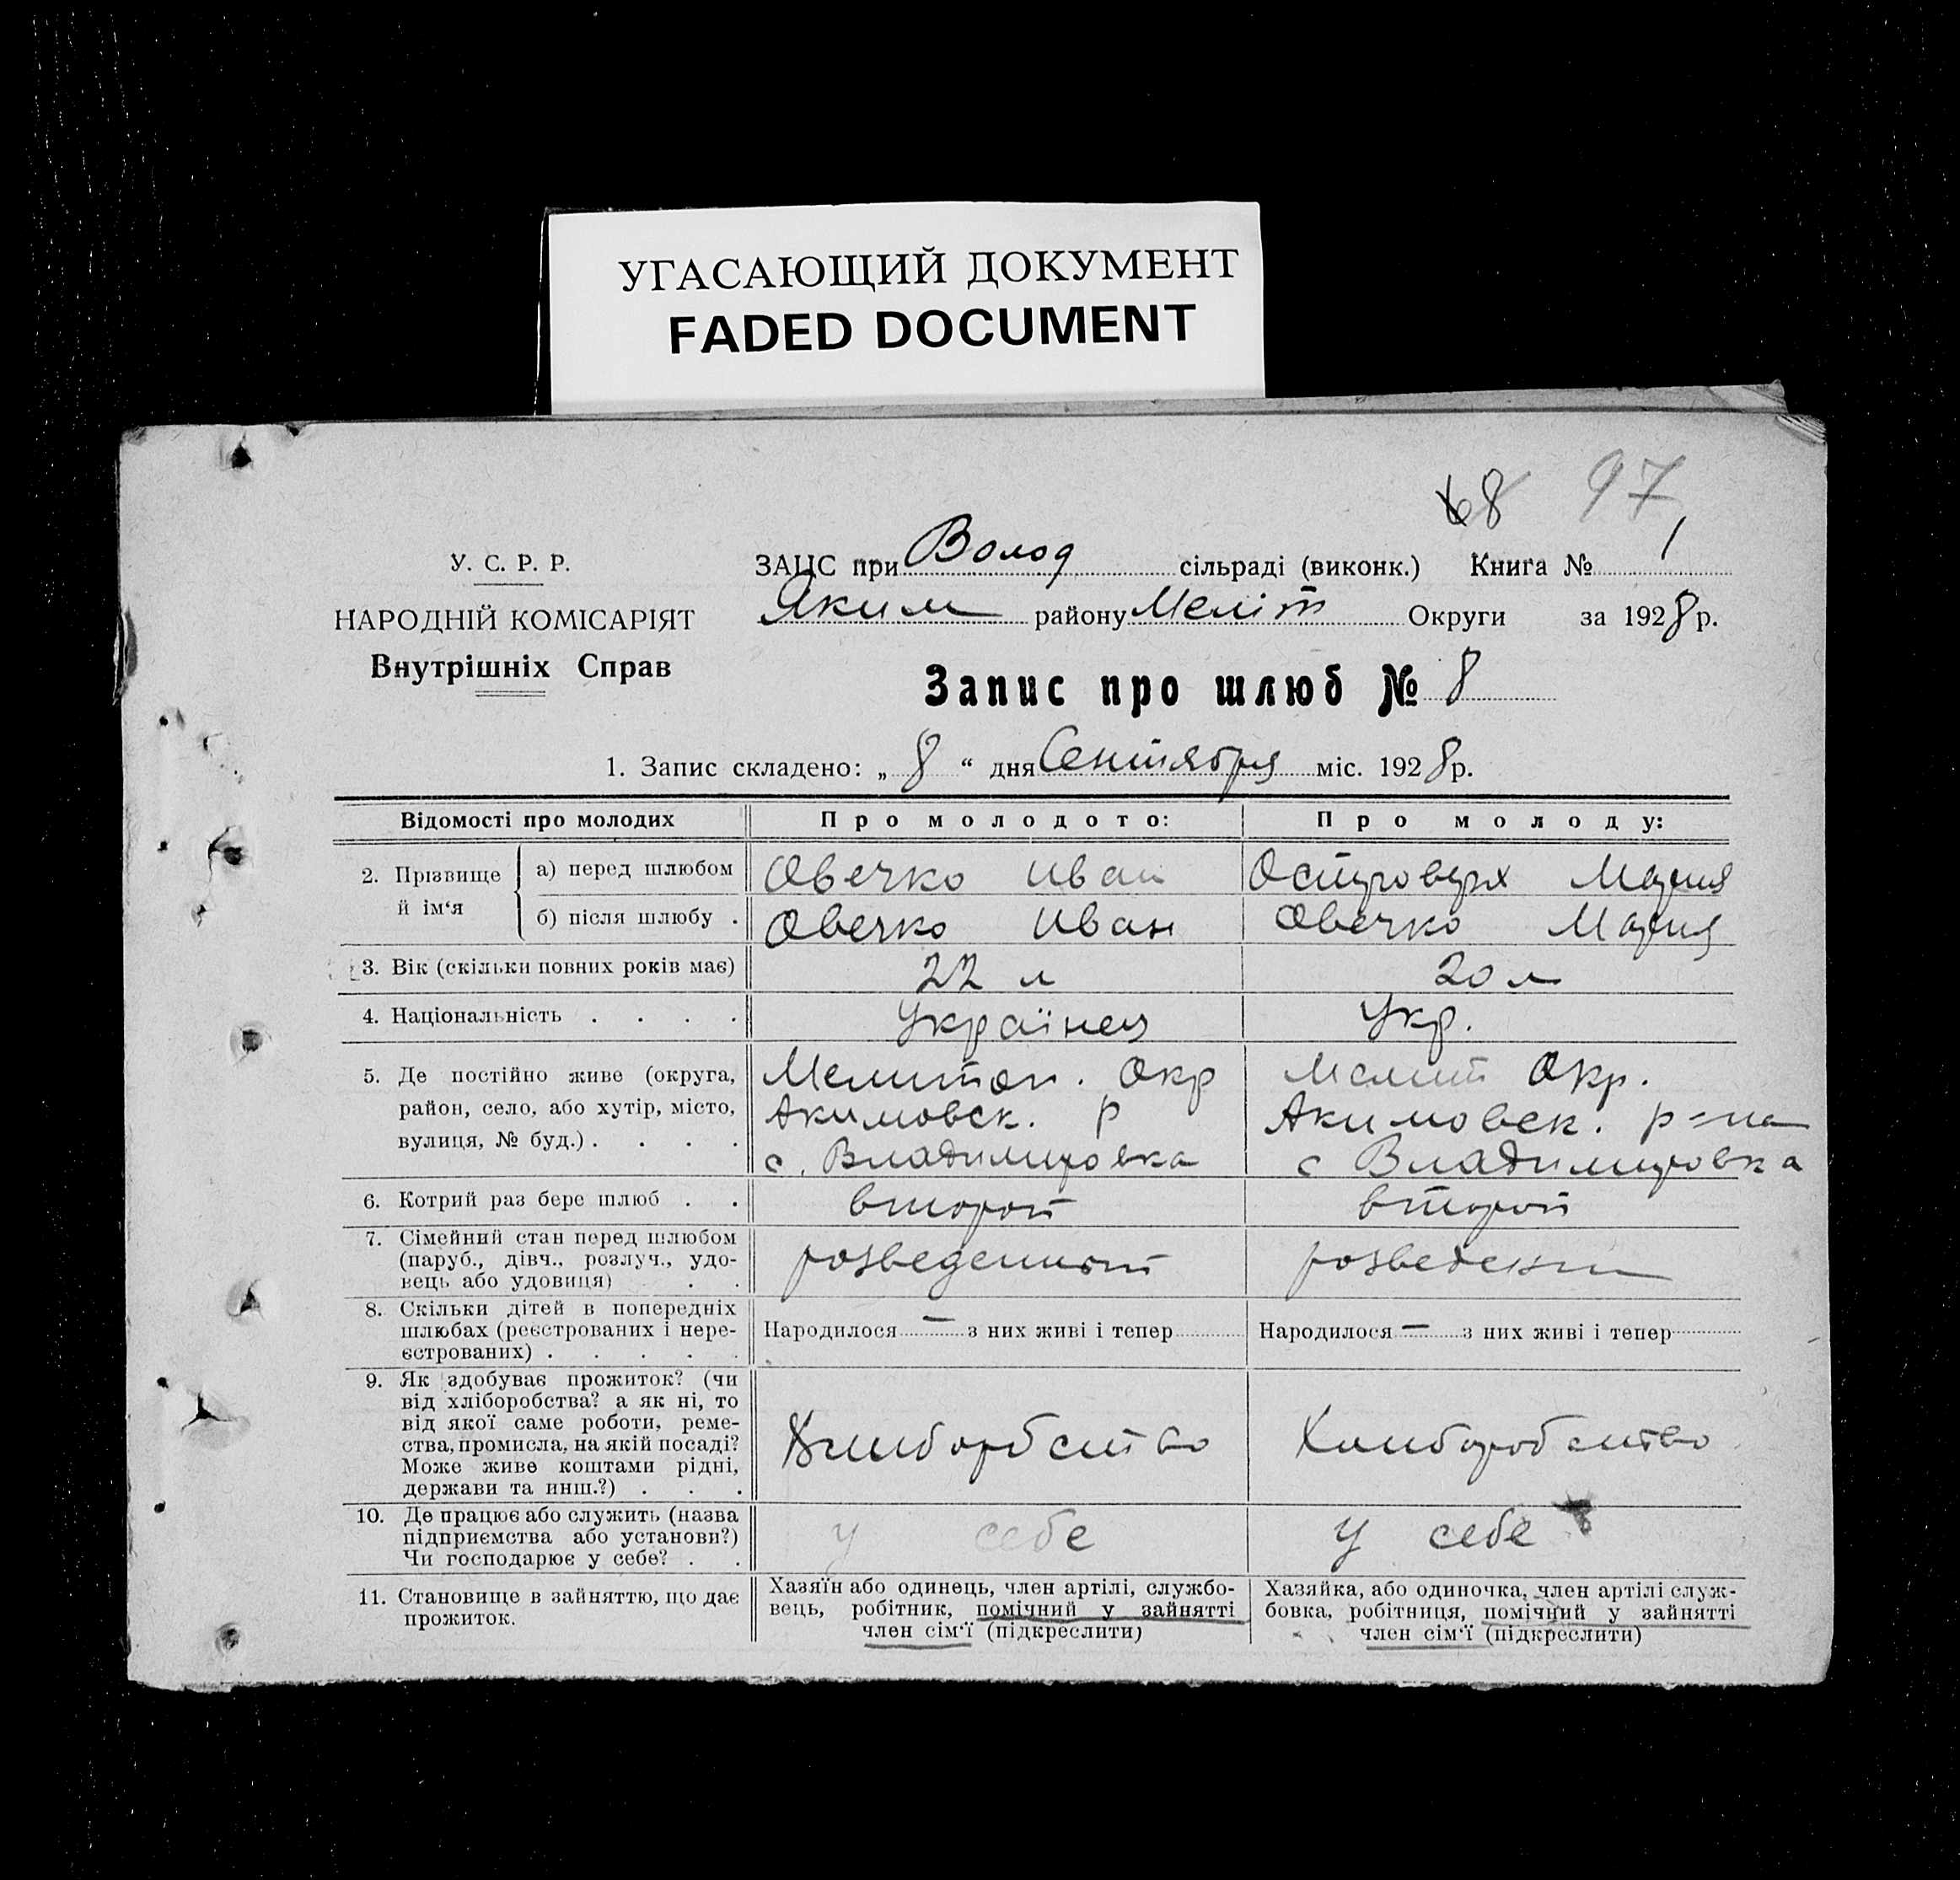 УГАСАЮЩИЙ ДОКУМЕНТ
FADED DOCUMENT
68 97
У. С. Р. Р.
НАРОДНІЙ КОМІСАРІЯТ
Внутрішніх Справ
ЗАЦС при Волод сільраді (виконк.) Книга № 1
Яким району Меліт Округи за 1928 р.
Запис про шлюб № 8
1. Запис складено: „ 8 “ дня Сентября міс. 1928 р.
Відомості про молодих Про молодото: Про молоду:
2. Прізвище й ім‘я а) перед шлюбом Овечко Иван Островерх Мария
б) після шлюбу . Овечко Иван Овечко Мария
3. Вік (скільки повних років має) 22 л 20 л
4. Національність . . . . Українец Укр.
5. Де постійно живе (округа, Мелитоп. Окр Мелит Окр.
район, село, або хутір, місто, Акимовск. р Акимовск. р=на
вулиця, № буд.) . . . . с. Владимировка с Владимировка
6. Котрий раз бере шлюб . . второй второй
7. Сімейний стан перед шлюбом
(паруб., дівч., розлуч., удо-
вець або удовиця) . . розведенный розведен
8. Скільки дітей в попередніх
шлюбах (реєстрованих і нере- Народилося — з них живі і тепер Народилося — з них живі і тепер
єстрованих) . . . . .
9. Як здобуває прожиток? (чи
від хліборобства? а як ні, то
від якої саме роботи, реме-
ства, промисла, на якій посаді? Хлиборбство Хлиборобство
Може живе коштами рідні,
держави та инш.?) . . .
10. Де працює або служить (назва
підприємства або установи?) у себе у себе
Чи господарює у себе? . .
11. Становище в зайняттю, що дає
прожиток.
Хазяїн або одинець, член артілі, службо-
вець, робітник, помічний у зайнятті
член сім‘ї (підкреслити)
Хазяйка, або одиночка, член артілі служ-
бовка, робітниця, помічний у зайнятті
член сім‘ї (підкреслити)